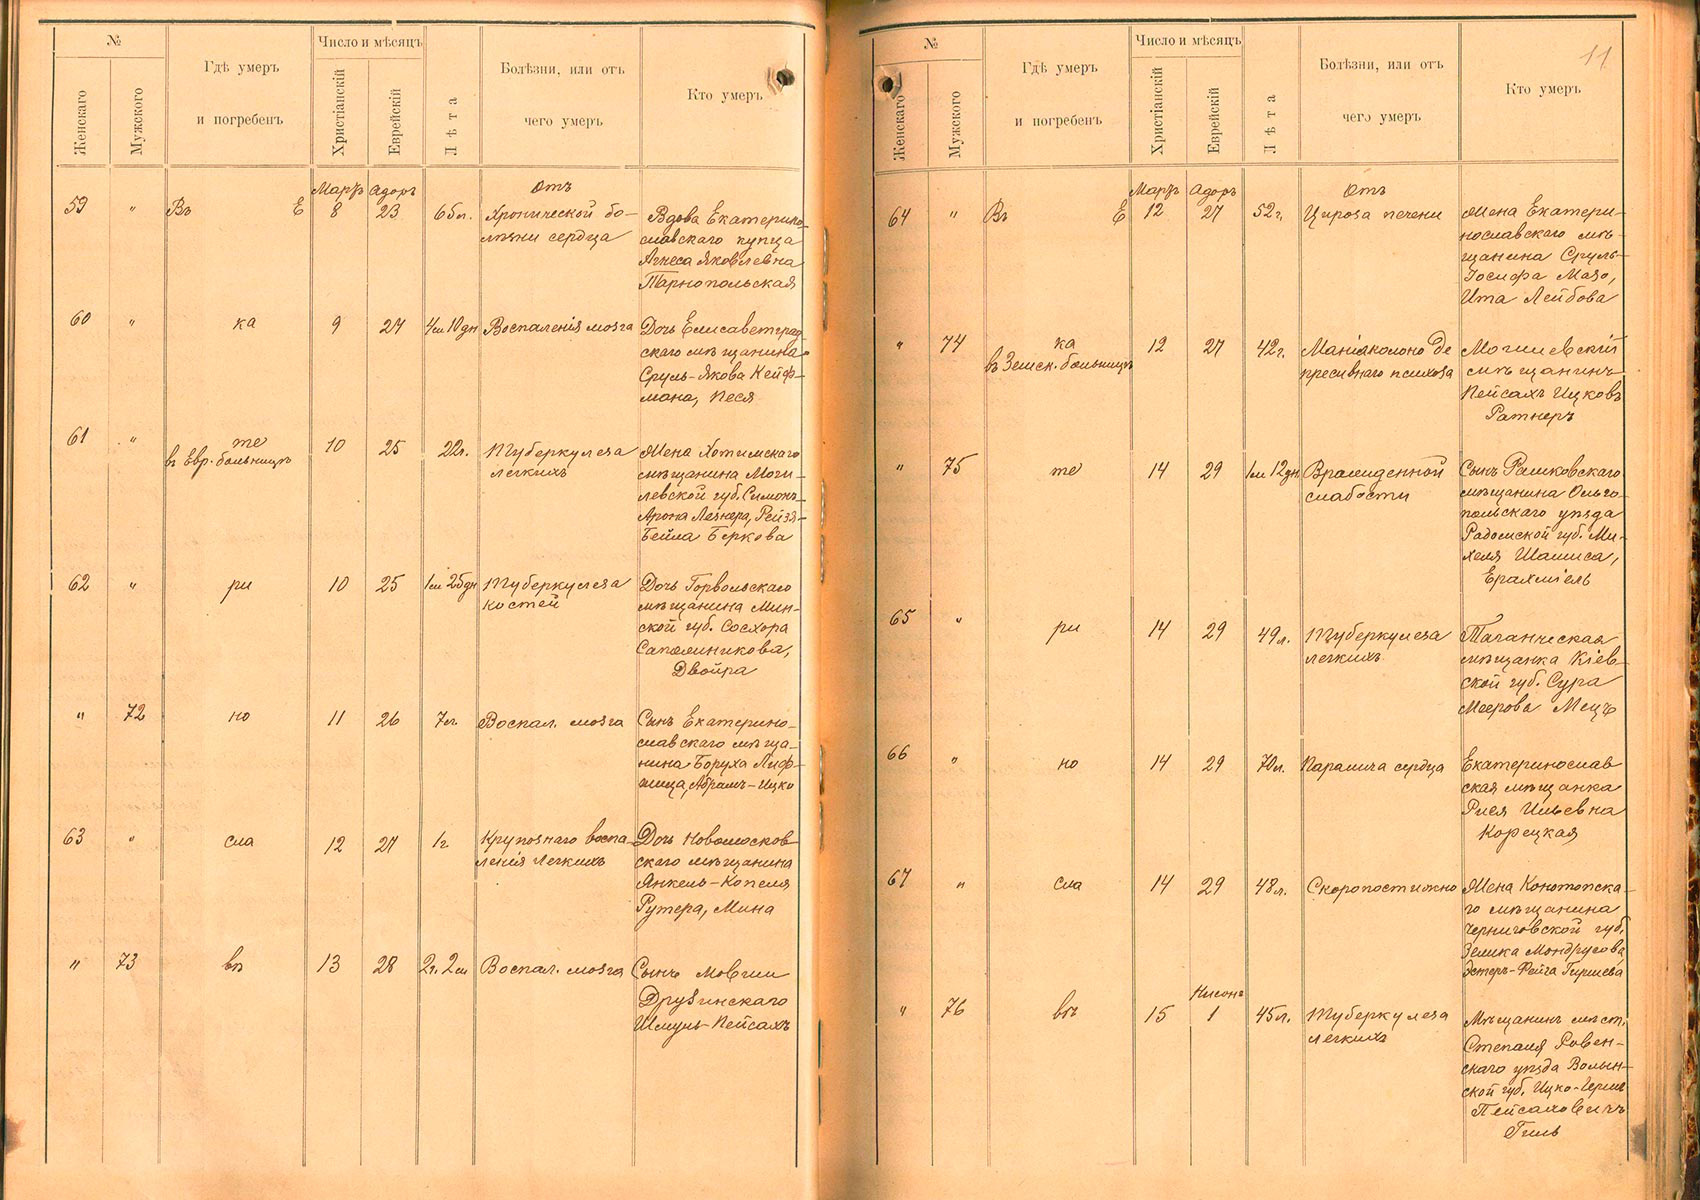 №
Число и мѣсяцъ
Женскаго
Мужского
Гдѣ умеръ
и погребенъ
Христіанскій
Еврейскій
Лѣта
Болѣзни, или отъ
чего умеръ
Кто умеръ
59 " Въ Е Мартъ 8 Адоръ 23 65л.
Отъ
Хронической бо-
лѣзни сердца
Вдова Екатерино-
славскаго купца
Агнеса Яковлевна
Тарнопольская
60 " ка 9 24 4м 10дн Воспаленія мозга
Дочь Елисаветград
скаго мѣщанина
Сруль-Якова Кейф-
мана, Песя
61 " те
в Евр. больницѣ
10 25 22г. Туберкулеза
легкихъ
Жена Хотимскаго
мѣщанина Моги-
левской губ. Симонъ-
Арона Лезнера, Рейзя-
Бейла Беркова
62 " ри 10 25 1м 25дн Туберкулеза
костей
Дочь Горвольскаго
мѣщанина Мин-
ской губ. Сосхора
Сапожникова,
Двойра
" 72 но 11 26 7л. Воспал. мозга
Сынъ Екатерино-
славскаго мѣща-
нина Боруха Лиф-
шица, Абрамъ-Ицко
63 " сла 12 27 1г Крупознаго воспа-
ленія легкихъ
Дочь Новомосков
скаго мѣщанина
Янкель-Копеля
Рутера, Мина
" 73 въ 13 28 2г. 2м Воспал. мозга
Сынъ Мовши
Друзинскаго
Шмуль-Пейсахъ
11
№
Число и мѣсяцъ
Женскаго
Мужского
Гдѣ умеръ
и погребенъ
Христіанскій
Еврейскій
Лѣта
Болѣзни, или отъ
чего умеръ
Кто умеръ
64 " Въ Е Мартъ 12 Адоръ 27 52г.
Отъ
Цироза печени
Жена Екатери-
нославскаго мѣ-
щанина Сруль-
Іосифа Мазо,
Ита Лейбова
" 74 ка
въ Земск. больницѣ
12 27 42г. Маніаколоно де
пресивнаго психоза
Могилевскій
мѣщанинъ
Пейсахъ Ицковъ
Ратнеръ
" 75 те 14 29 1м 12дн Врожденной
слабости
Сынъ Рашковскаго
мѣщанина Ольго-
польскаго уѣзда
Радомской губ. Ми-
хеля Шамиса,
Ерахміель
65 " ри 14 29 49л. Туберкулеза
легкихъ
Таганческая
мѣщанка Кіев-
ской губ. Сура
Меерова Мецъ
66 " но 14 29 70л. Паралича сердца
Екатеринослав
ская мѣщанка
Рися Ильевна
Корецкая
67 " сла 14 29 48л. Скоропостижно
Жена Конотопска-
го мѣщанина
Черниговской губ.
Зелика Мондрусова
Эстеръ-Фейга Гиршева
" 76 въ 15 Нисонъ 1 45л. Туберкулеза
легкихъ
Мѣщанинъ мѣст.
Степаня Ровен-
скаго уѣзда Волын-
ской губ. Ицко-Гершъ
Пейсаховичъ
Гиль